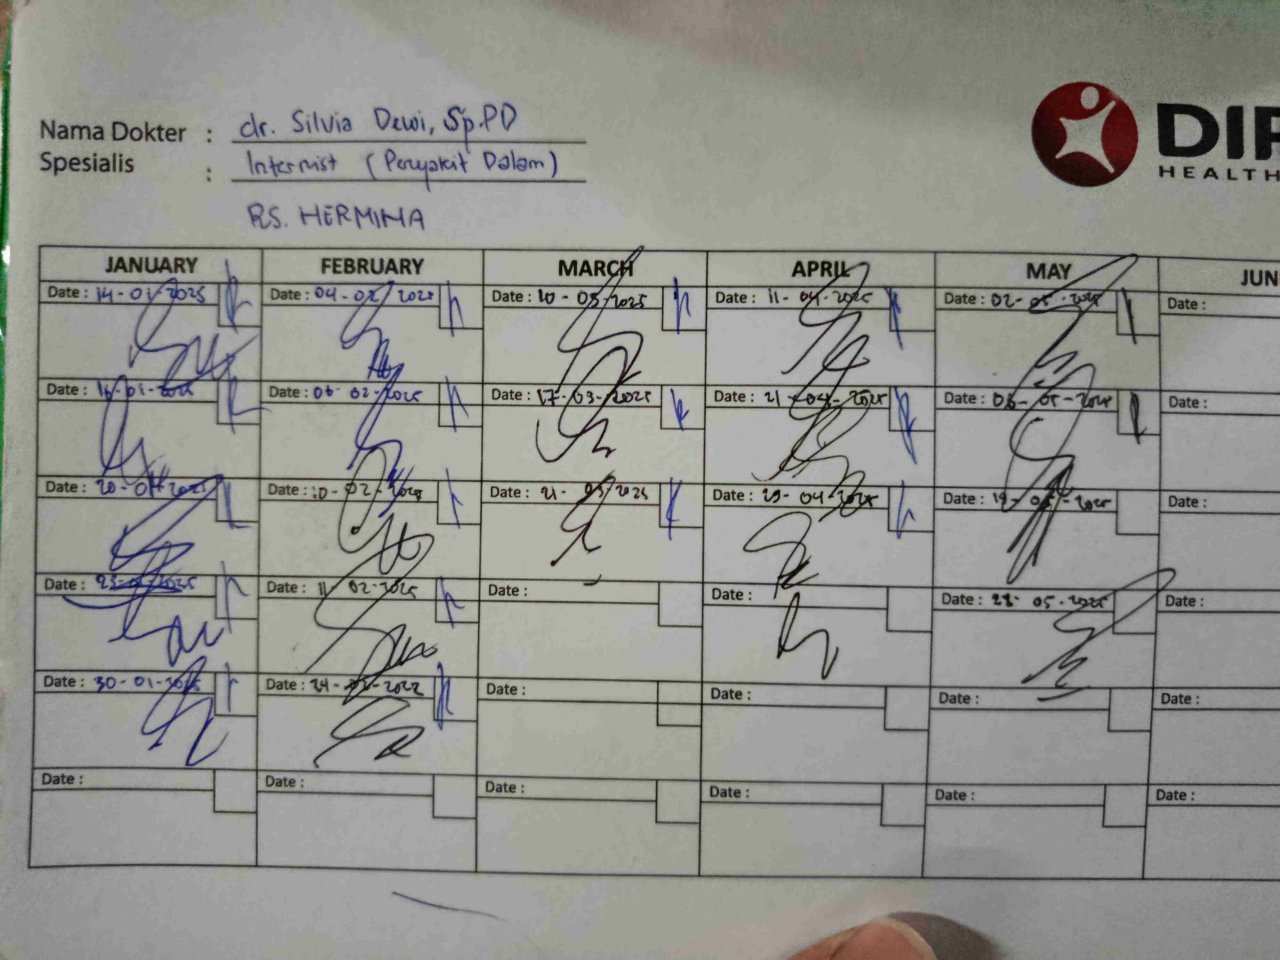 Nama Dokter : dr. Silvia Dewi, Sp.PD
Spesialis : Internist (Penyakit Dalam)
RS. HERMINA
DIP
HEALTH
JANUARY FEBRUARY MARCH APRIL MAY JUN
Date : 14-01-2025 Date : 04-02-2025 Date : 10-03-2025 Date : 11-04-2025 Date : 02-05-2025 Date :
Date : 16-01-2025 Date : 06-02-2025 Date : 17-03-2025 Date : 21-04-2025 Date : 08-05-2025 Date :
Date : 20-01-2025 Date : 10-02-2025 Date : 21-03-2025 Date : 29-04-2025 Date : 19-05-2025 Date :
Date : 23-01-2025 Date : 11-02-2025 Date : Date : Date : 28-05-2025 Date :
Date : 30-01-2025 Date : 24-02-2022 Date : Date : Date : Date :
Date : Date : Date : Date : Date : Date :